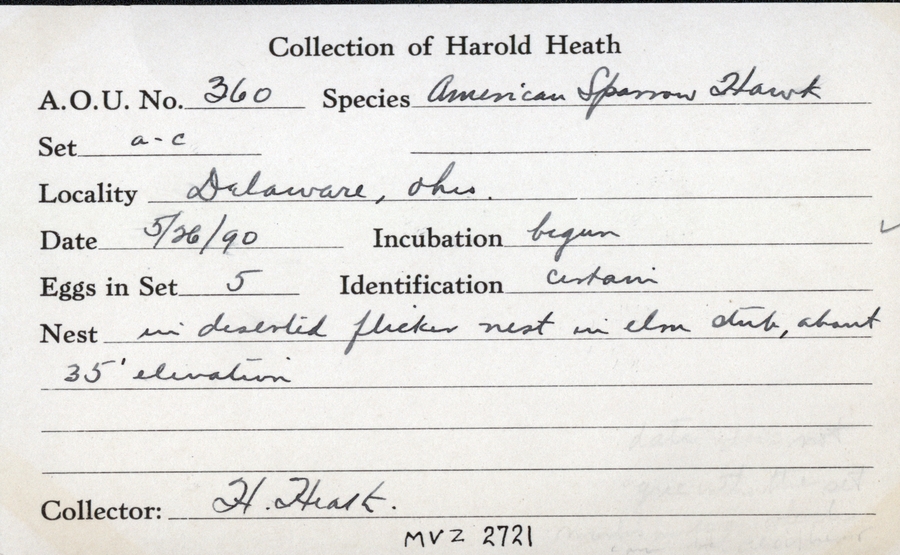 Collection of Harold Heath
A.O.U. No. 360 Species American Sparrow Hawk
Set a-c
Locality Delaware, Ohio.
Date 5/26/90 Incubation begun
Eggs in Set 5 Identification certain
Nest in deserted flicker nest in elm stub, about
35' elevation
data does not
Collector: H. Heath.
MVZ 2721